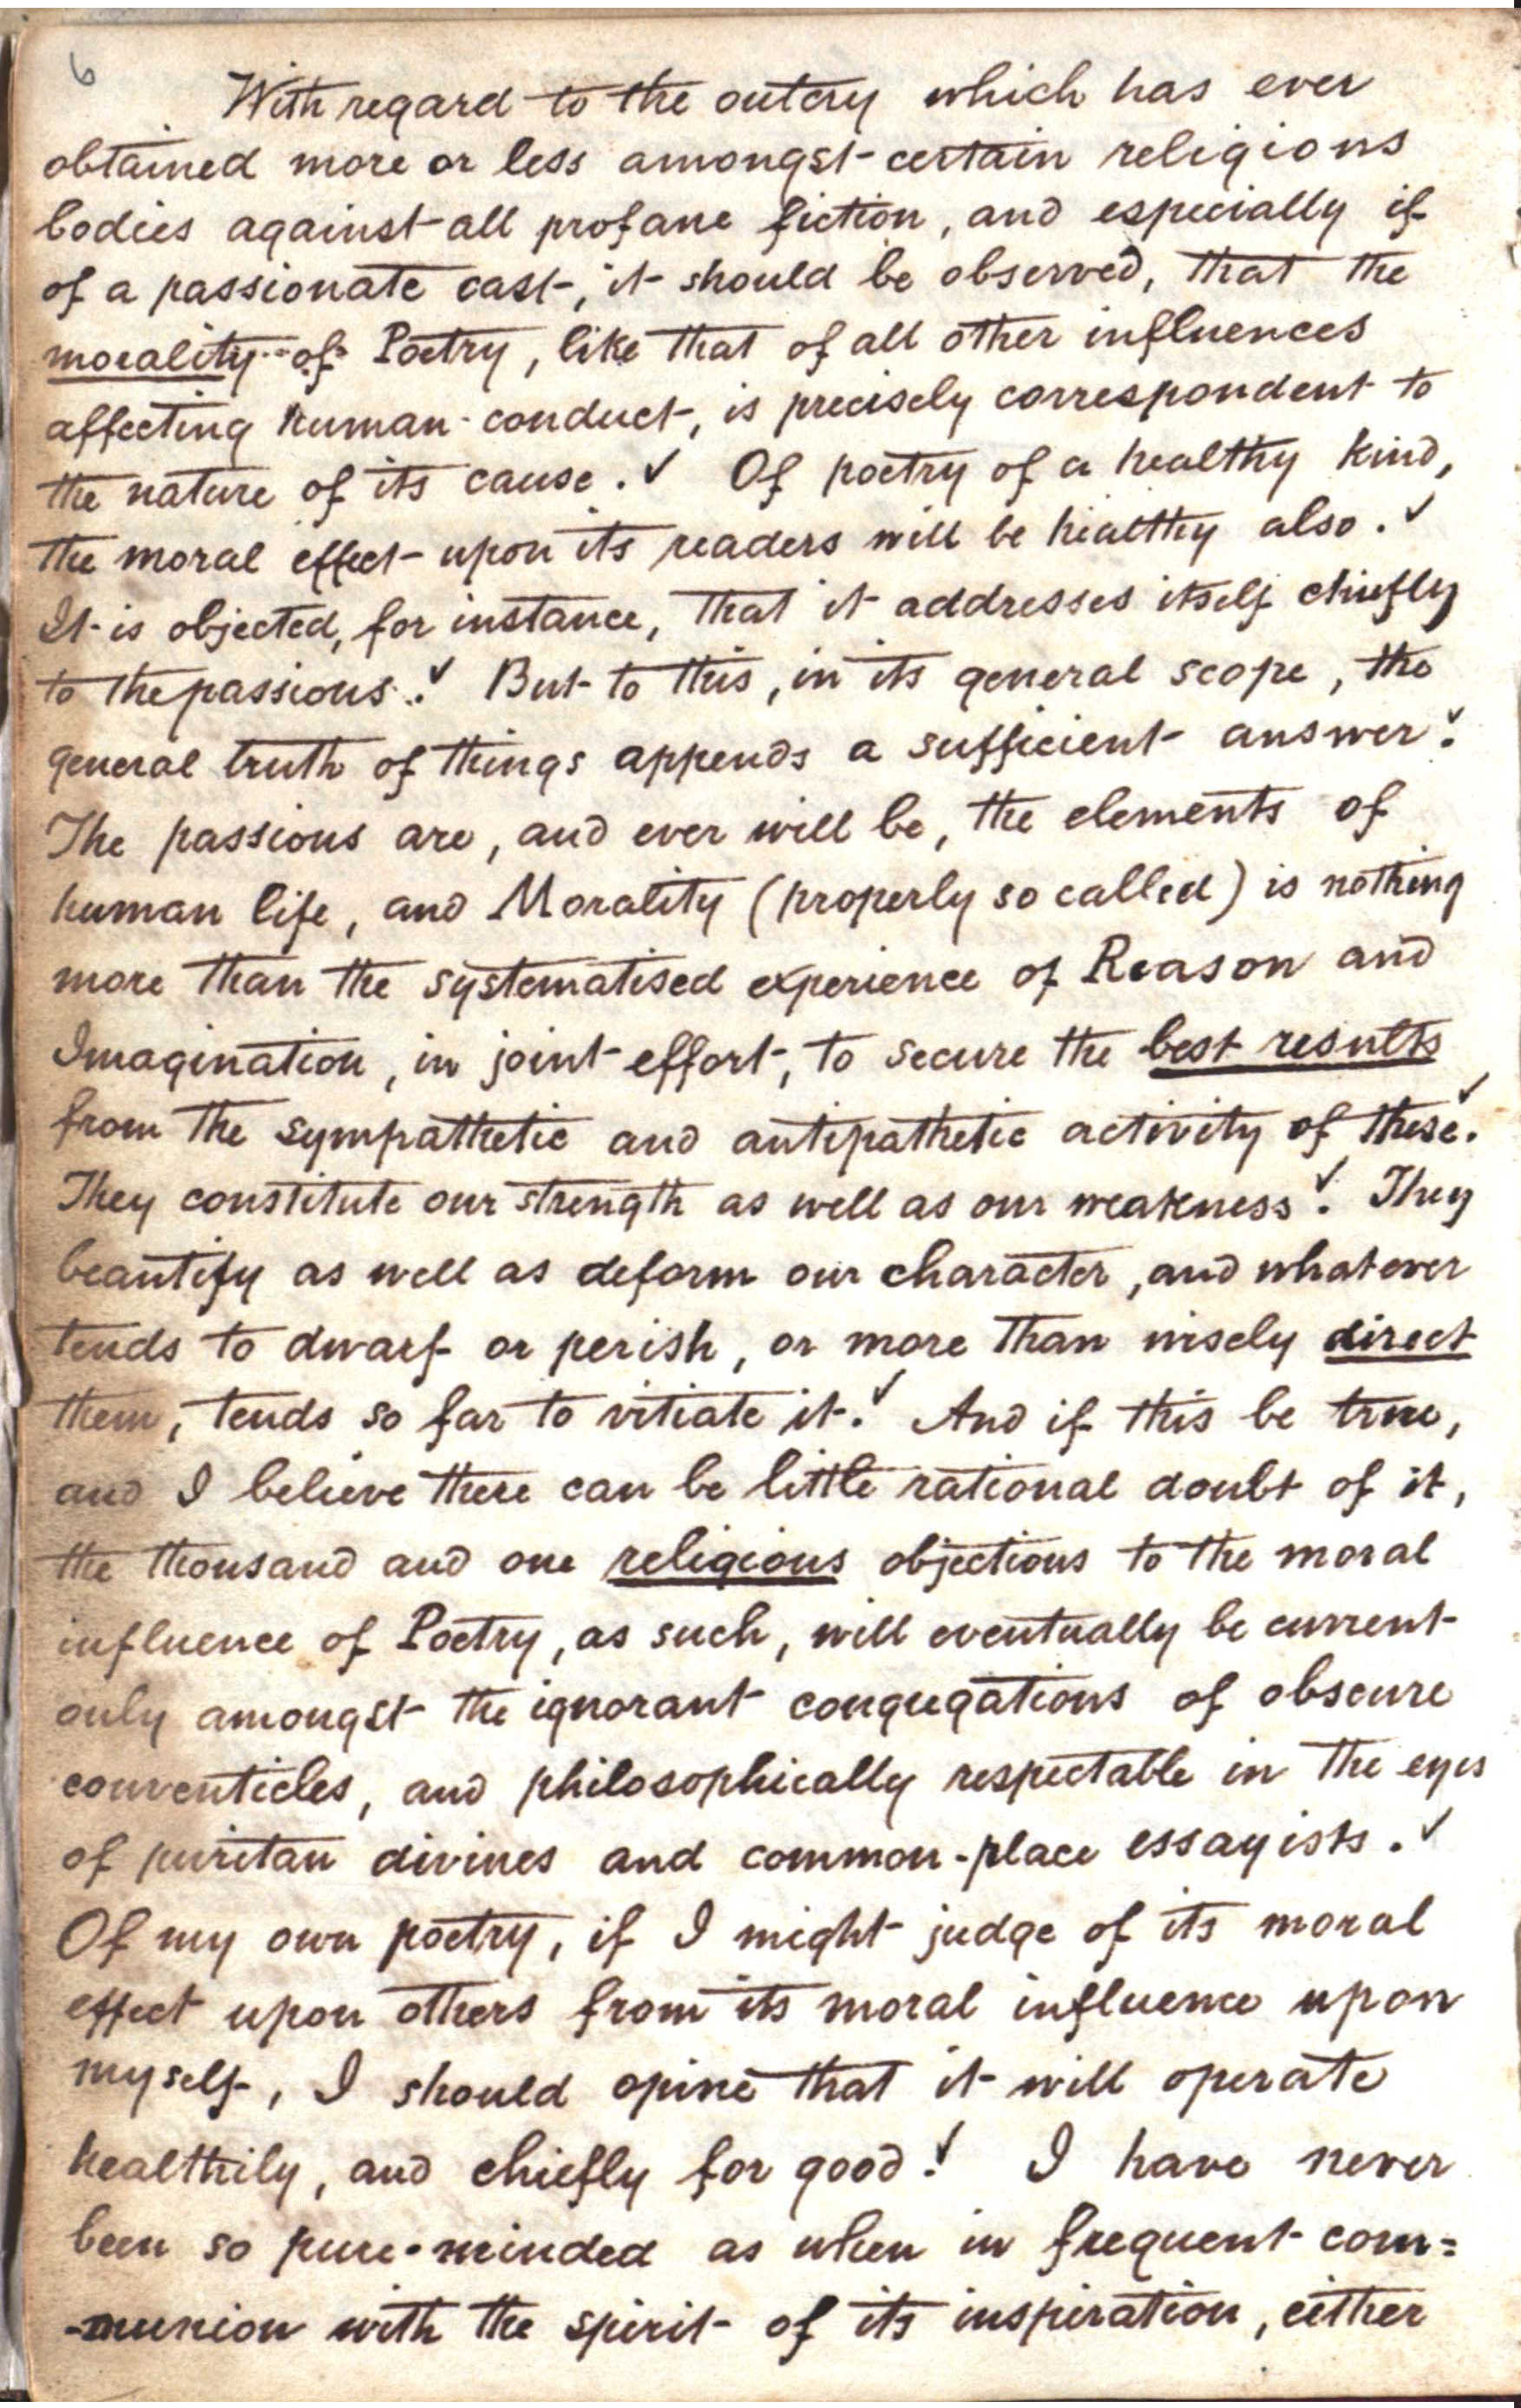 6
With regard to the outcry which has ever
obtained more or less amongst certain religious
bodies against all profane fiction, and especially if
of a passionate cast, it should be observed, that the
morality of Poetry, like that of all other influences
affecting human conduct, is precisely correspondent to
the nature of its cause. ✓ Of poetry of a healthy kind,
the moral effect upon its readers will be healthy also. ✓
It is objected, for instance, that it addresses itself chiefly
to the passions. ✓ But to this, in its general scope, the
general truth of things appends a sufficient answer. ✓
The passions are, and ever will be, the elements of
human life, and Morality (properly so called) is nothing
more than the systematised experience of Reason and
Imagination, in joint effort, to secure the best results
from the sympathetic and antipathetic activity of these. ✓
They constitute our strength as well as our weakness. ✓ They
beautify as well as deform our character, and whatever
tends to dwarf or perish, or more than wisely direct
them, tends so far to vitiate it. ✓ And if this be true,
and I believe there can be little rational doubt of it,
the thousand and one religious objections to the moral
influence of Poetry, as such, will eventually be current
only amongst the ignorant congregations of obscure
conventicles, and philosophically respectable in the eyes
of puritan divines and common-place essayists. ✓
Of my own poetry, if I might judge of its moral
effect upon others from its moral influence upon
myself, I should opine that it will operate
healthily, and chiefly for good. ✓ I have never
been so pure-minded as when in frequent com=
-munion with the spirit of its inspiration, either